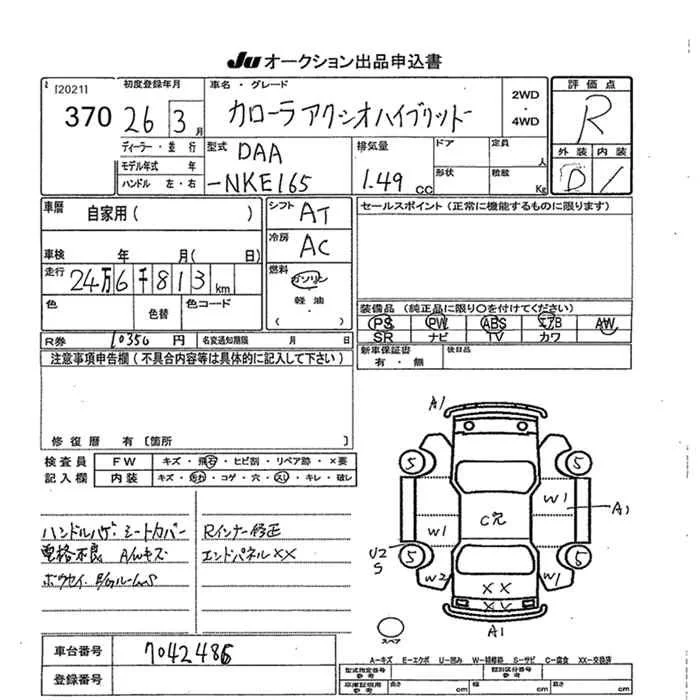 Ju オークション出品申込書
[2021]
370
初度登録年月
26 3月
車名・グレード
カローラアクシオハイブリッド
2WD
・
4WD
評価点
R
外装 内装
D /
ディーラー・並行
モデル年式 年
ハンドル 左・右
型式
DAA
-NKE165
排気量
1.49 CC
ドア
定員
人
形状
積載
Kg
車暦
自家用( )
シフト AT
冷房 AC
燃料
ガソリン
・
軽油
・
( )
セールスポイント (正常に機能するものに限ります)
車検 年 月( 日)
走行 24万6千813km
色
色替
色コード
装備品 (純正品に限り○を付けてください)
PS PW ABS エアB AW
SR ナビ TV カワ
R券 10350 円
名変通知期限 月 日
新車保証書
有・無
後日品
注意事項申告欄 (不具合内容等は具体的に記入して下さい)
修復歴 有 [箇所 ]
検査員
記入欄
FW キズ・飛石・ヒビ割・リペア跡・×要
内装 キズ・汚れ・コゲ・穴・スレ・キレ・破レ
ハンドルハゲ・シートカバー
電格不良 A/Wキズ
Rインナー修正
エンドパネルXX
A1
5 5
W1
A1
W1
C穴
U2
S
5 5
W2 W1
XX
XX
A1
スペア
車台番号 7042486
登録番号
A―キズ E―エクボ U―凹み W―補修跡 S―サビ C―腐食 XX―交換済
型式指定番号
参考
類別区分番号
参考
車庫証明用
参考
長さ cm 幅 cm 高さ cm